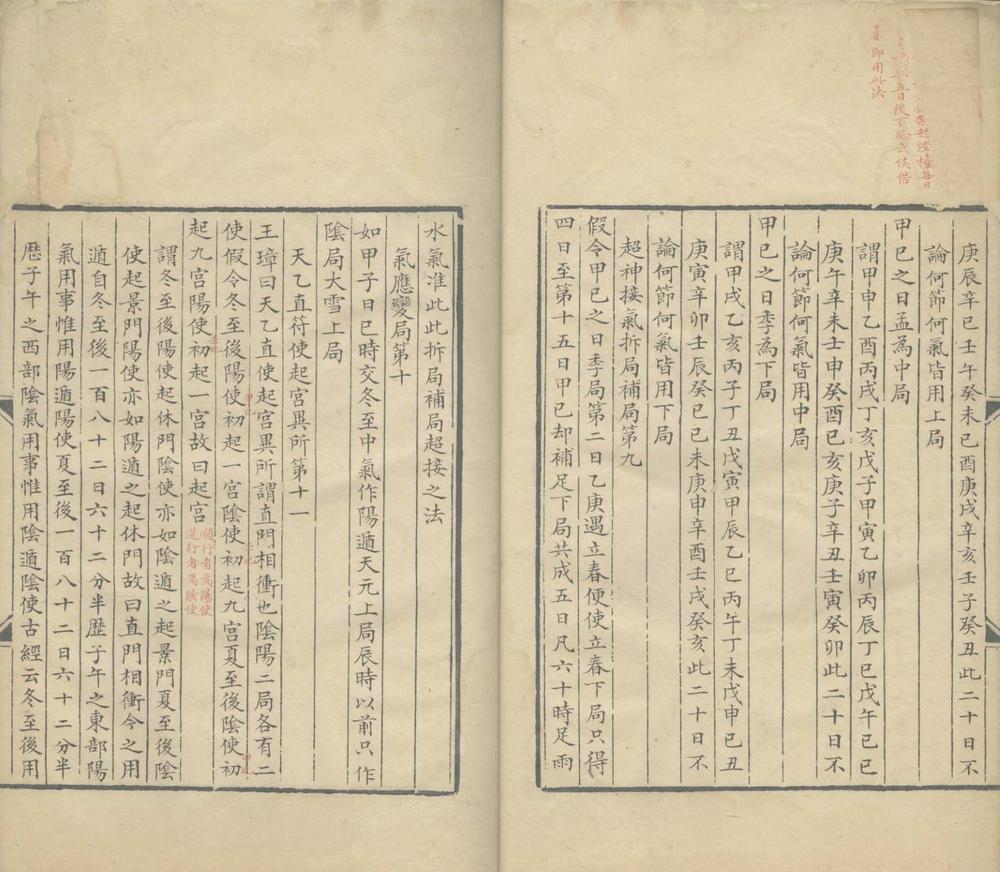 庚辰辛巳壬午癸未己酉庚戌辛亥壬子癸丑此二十日不
論何節何氣皆用上局
甲巳之日孟為中局
謂甲申乙酉丙戌丁亥戊子甲寅乙卯丙辰丁巳戊午己巳
庚午辛未壬申癸酉己亥庚子辛丑壬寅癸卯此二十日不
論何節何氣皆用中局
甲巳之日季為下局
謂甲戌乙亥丙子丁丑戊寅甲辰乙巳丙午丁未戊申己丑
庚寅辛卯壬辰癸巳己未庚申辛酉壬戌癸亥此二十日不
論何節何氣皆用下局
超神接氣拆局補局第九
假令甲巳之日季局第二日乙庚遇立春便使立春下局只得
四日至第十五日甲巳却補足下局共成五日凡六十時足雨
即用此法
水氣准此此拆局補局超接之法
氣應變局第十
如甲子日巳時交冬至中氣作陽遁天元上局辰時以前只作
陰局大雪上局
天乙直符使起宮異所第十一
王璋曰天乙直使起宮異所謂直門相衝也陰陽二局各有二
使假令冬至後陽使初起一宮陰使初起九宮夏至後陰使初
起九宮陽使初起一宮故曰起宮
順行者為陽使
逆行者為陰使
謂冬至後陽使起休門陰使亦如陰遁之起景門夏至後陰
使起景門陽使亦如陽遁之起休門故曰直門相衝今之用
遁自冬至後一百八十二日六十二分半歷子午之東部陽
氣用事惟用陽遁陽使夏至後一百八十二日六十二分半
歷子午之西部陰氣用事惟用陰遁陰使古經云冬至後用